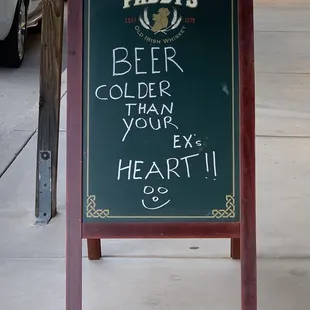 PADDY'S
OLD IRISH WHISKEY
BEER
COLDER
THAN
YOUR
EX's
HEART!!